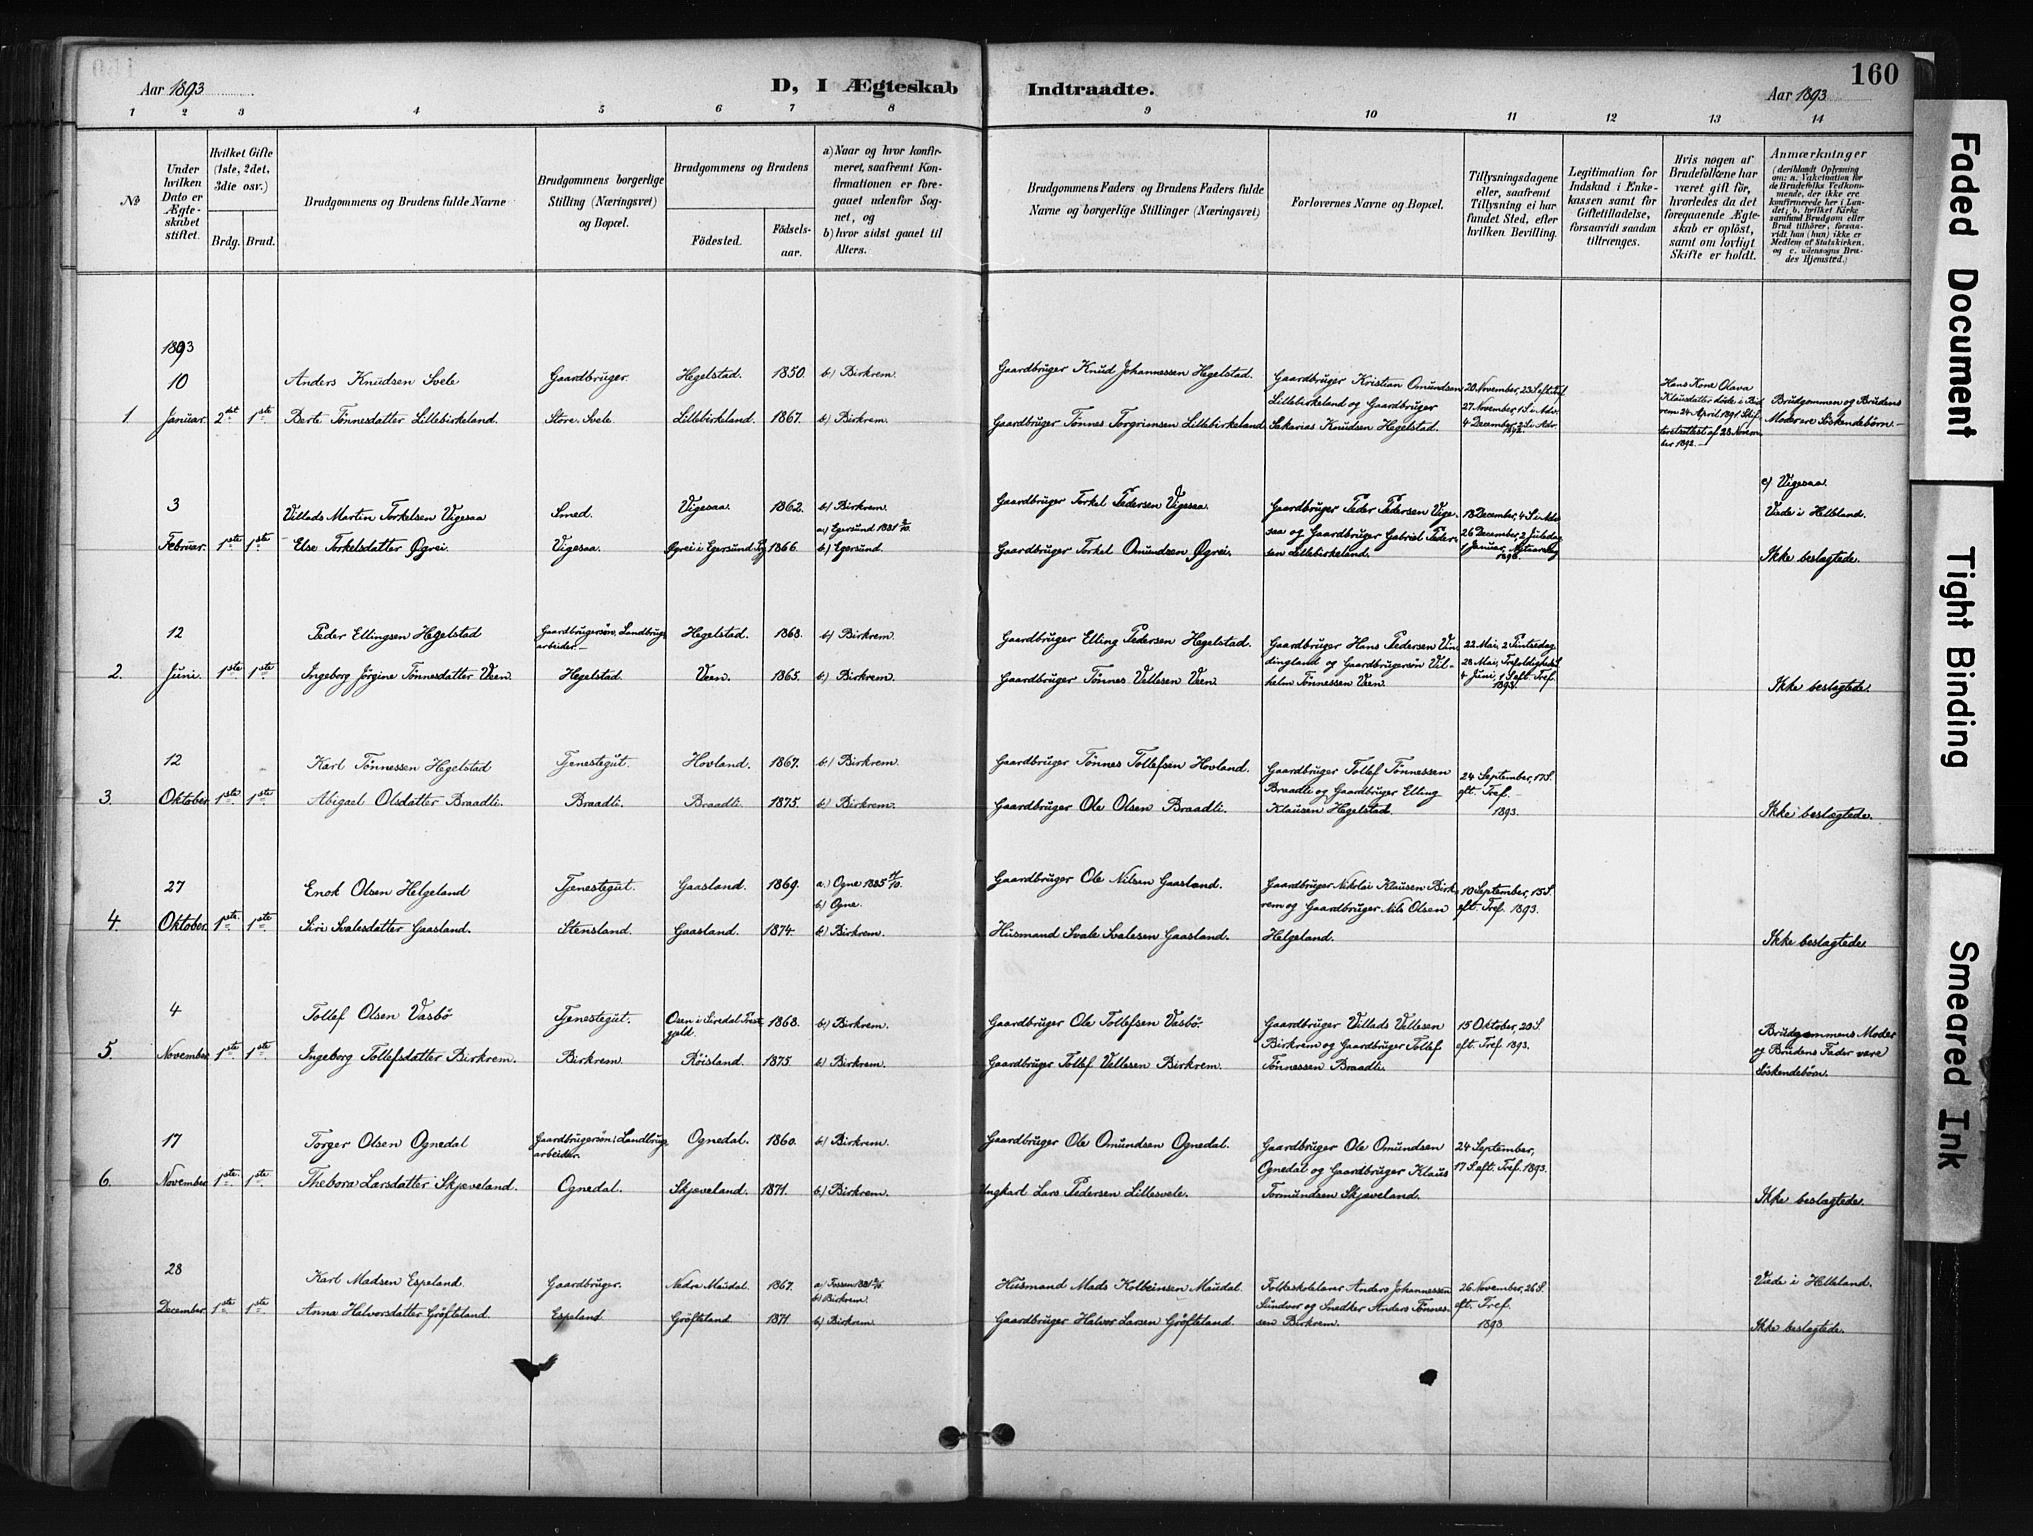 160
Aar 1893
D, I Ægteskab
Indtraadte.
Aar 1893
1 2 3 4 5 6 7 8 9 10 11 12 13 14
No
Under hvilken Dato er Ægteskabet stiftet.
Hvilket Gifte (1ste, 2det, 3die osv.)
Brdg. Brud.
Brudgommens og Brudens fulde Navne
Brudgommens borgerlige Stilling (Næringsvei) og Bopæl.
Brudgommens og Brudens
Födested.
Födsels-aar.
a) Naar og hvor konfirmeret, saafremt Konfirmationen er foregaaet udenfor Sognet, og
b) hvor sidst gaaet til Alters.
Brudgommens Faders og Brudens Faders fulde Navne og borgerlige Stillinger (Næringsvei)
Forlovernes Navne og Bopæl.
Tillysningsdagene eller, saafremt Tillysning ei har fundet Sted, efter hvilken Bevilling.
Legitimation for Indskud i Enkekassen samt for Giftetilladelse, forsaavidt saadan tiltrænges.
Hvis nogen af Brudefolkene har været gift för, hvorledes da det foregaaende Ægteskab er oplöst, samt om lovligt Skifte er holdt.
Anmærkninger
(deriblandt Oplysning om: a. Vakcination for de Brudefolks Vedkommende, der ikke ere konfirmerede her i Landet; b. hvilket Kirkesamfund Brudgom eller Brud tilhörer, forsaavidt han (hun) ikke er Medlem af Statskirken, og c. udensogns Brudes Hjemsted.)
1893
10 Anders Knudsen Svele Gaardbruger. Hegelstad. 1850. b) Birkrem. Gaardbruger Knud Johannessen Hegelstad. Gaardbruger Kristian Omundsen 20 November, 23 S. eft. Tref. Hans Kone Olava
Lillebirkeland og Gaardbruger 27 November, 1 S. i Adv. Klausdatter døde i Birkrem 24 April 1891. Brudgommen og Brudens
1. Januar. 2det 1ste Berte Tønnesdatter Lillebirkeland. Store Svele. Lillebirkeland. 1867. b) Birkrem. Gaardbruger Tønnes Torgrimsen Lillebirkeland Sakarias Knudsen Hegelstad. 4 December, 2 S. i Adv. 1892. af 28 November 1892. Moder ere Søskendebørn.
c) Vigesaa
3 Villads Martin Torkelsen Vigesaa Smed. Vigesaa. 1862. b) Birkrem. Gaardbruger Torkel Pedersen Vigesaa. Gaardbruger Peder Pedersen Vige- 18 December, 4 S. i Adv.
a) Egersund 1881 saa og Gaardbruger Gabriel Peder- 26 December, 2 Juledag
Februar. 1ste 1ste Else Torkelsdatter Øgrei. Vigesaa. Øgrei i Egersund 1866. b) Egersund. Gaardbruger Torkel Omundsen Øgrei. sen Lillebirkeland. 1 Januar, Nytaarsdag 1893. Ikke beslægtede.
12 Peder Ellingsen Hegelstad Gaardbrugersøn, Landbrugs- Hegelstad. 1868. b) Birkrem. Gaardbruger Elling Pedersen Hegelstad. Gaardbruger Hans Pedersen Lin- 22 Mai, 2 Pintsedag
arbeider. dingland og Gaardbrugersøn Vil- 28 Mai, Trefoldigheds.
2. Juni. 1ste 1ste Ingeborg Jørgine Tønnesdatter Veen. Hegelstad. Veen. 1865. b) Birkrem. Gaardbruger Tønnes Vellesen Veen. helm Tønnessen Veen. 4 Juni, 1 S. eft. Tref. 1893. Ikke beslægtede.
12 Karl Tønnessen Hegelstad Tjenestegut. Hovland. 1867. b) Birkrem. Gaardbruger Tønnes Tollefsen Hovland. Gaardbruger Tollef Tønnessen 24 September, 17 S.
Braadli og Gaardbruger Elling eft. Tref.
3. Oktober 1ste 1ste Abigael Olsdatter Braadli. Braadli. Braadli. 1875. b) Birkrem. Gaardbruger Ole Olsen Braadli. Klausen Hegelstad. 1893. Ikke beslægtede.
27 Enok Olsen Helgeland Tjenestegut. Gaasland. 1869. a.) Ogne 1885 4/10. Gaardbruger Ole Nilsen Gaasland. Gaardbruger Nikolai Klausen Birk- 10 September, 15 S.
b) Ogne. rem og Gaardbruger Nils Olsen eft. Tref. 1893.
4. Oktober. 1ste 1ste Siri Svalesdatter Gaasland. Stensland. Gaasland. 1874. b) Birkrem. Husmand Svale Svalesen Gaasland. Helgeland. Ikke beslægtede
4 Tollef Olsen Vasbø Tjenestegut. Osen i Siredal Præstegjeld. 1868. b) Birkrem. Gaardbruger Ole Tollefsen Vasbø. Gaardbruger Villads Vellesen 15 Oktober, 20 S. Brudgommens Moder
Birkrem og Gaardbruger Tollef eft. Tref 1893. og Brudens Fader vare
5. November 1ste 1ste Ingeborg Tollefsdatter Birkrem. Birkrem. Røisland. 1875. b) Birkrem. Gaardbruger Tollef Vellesen Birkrem. Tønnessen Braadli. Søskendebørn.
17 Torger Olsen Ognedal Gaardbrugersøn, Landbrugs- Ognedal. 1860. b) Birkrem. Gaardbruger Ole Omundsen Ognedal. Gaardbruger Ole Omundsen 24 September,
arbeider. Ognedal og Gaardbruger Klaus 17 S. eft. Tref. 1893.
6. November 1ste 1ste Thebora Larsdatter Skjæveland. Ognedal. Skjæveland. 1871. b) Birkrem. Ungkarl Lars Pedersen Lillesvele. Tormundsen Skjæveland. Ikke beslægtede.
28 Karl Madsen Espeland Gaardbruger. Nedre Maudal. 1867. a) b) Birkrem. Husmand Mads Kolbeinsen Maudal. Folkeskolelærer Anders Johannessen 26 November, 26 S. Viede i Helleland.
Sundvor og Snedker Anders Tønnes- eft. Tref.
December. 1ste 1ste Anna Halvorsdatter Grøfteland. Espeland. Grøfteland 1871 b) Birkrem. Gaardbruger Halvor Larsen Grøfteland. sen Birkrem. 1893 Ikke beslægtede.
Faded Document
Tight Binding
Smeared Ink